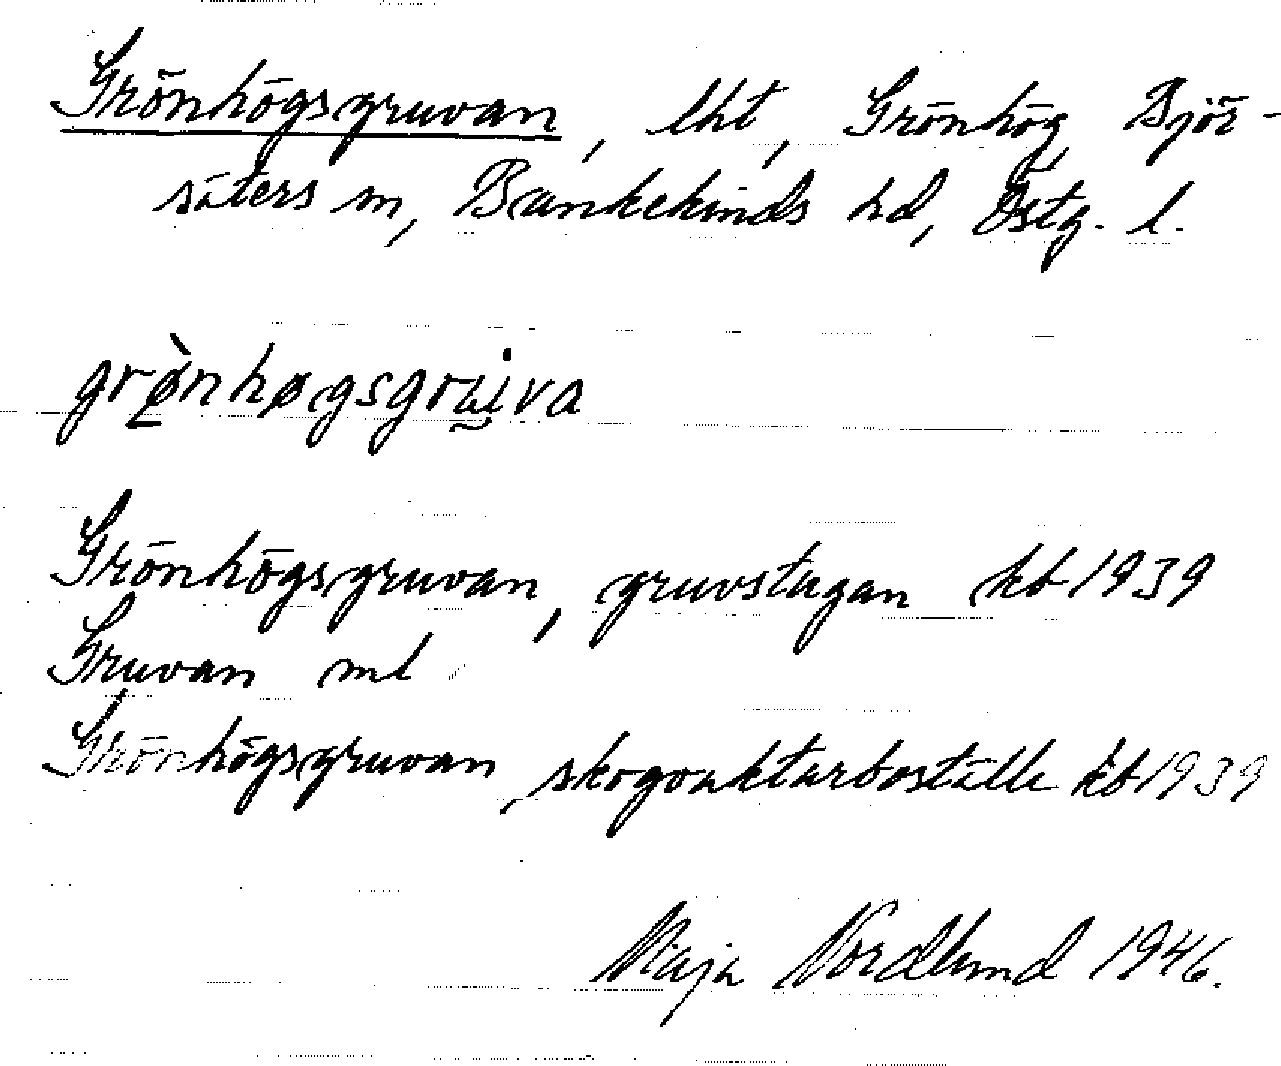 Grönhögsgruvan, lht, Grönhög Björ-
säters sn, Bankekinds hd, Östg. l.
grø̀nhøgsgruva
Grönhögsgruvan, gruvstugan kb 1939
Gruvan ml
Grönhögsgruvan, skogvaktarboställe kb 1939
Maja Nordlund 1946.